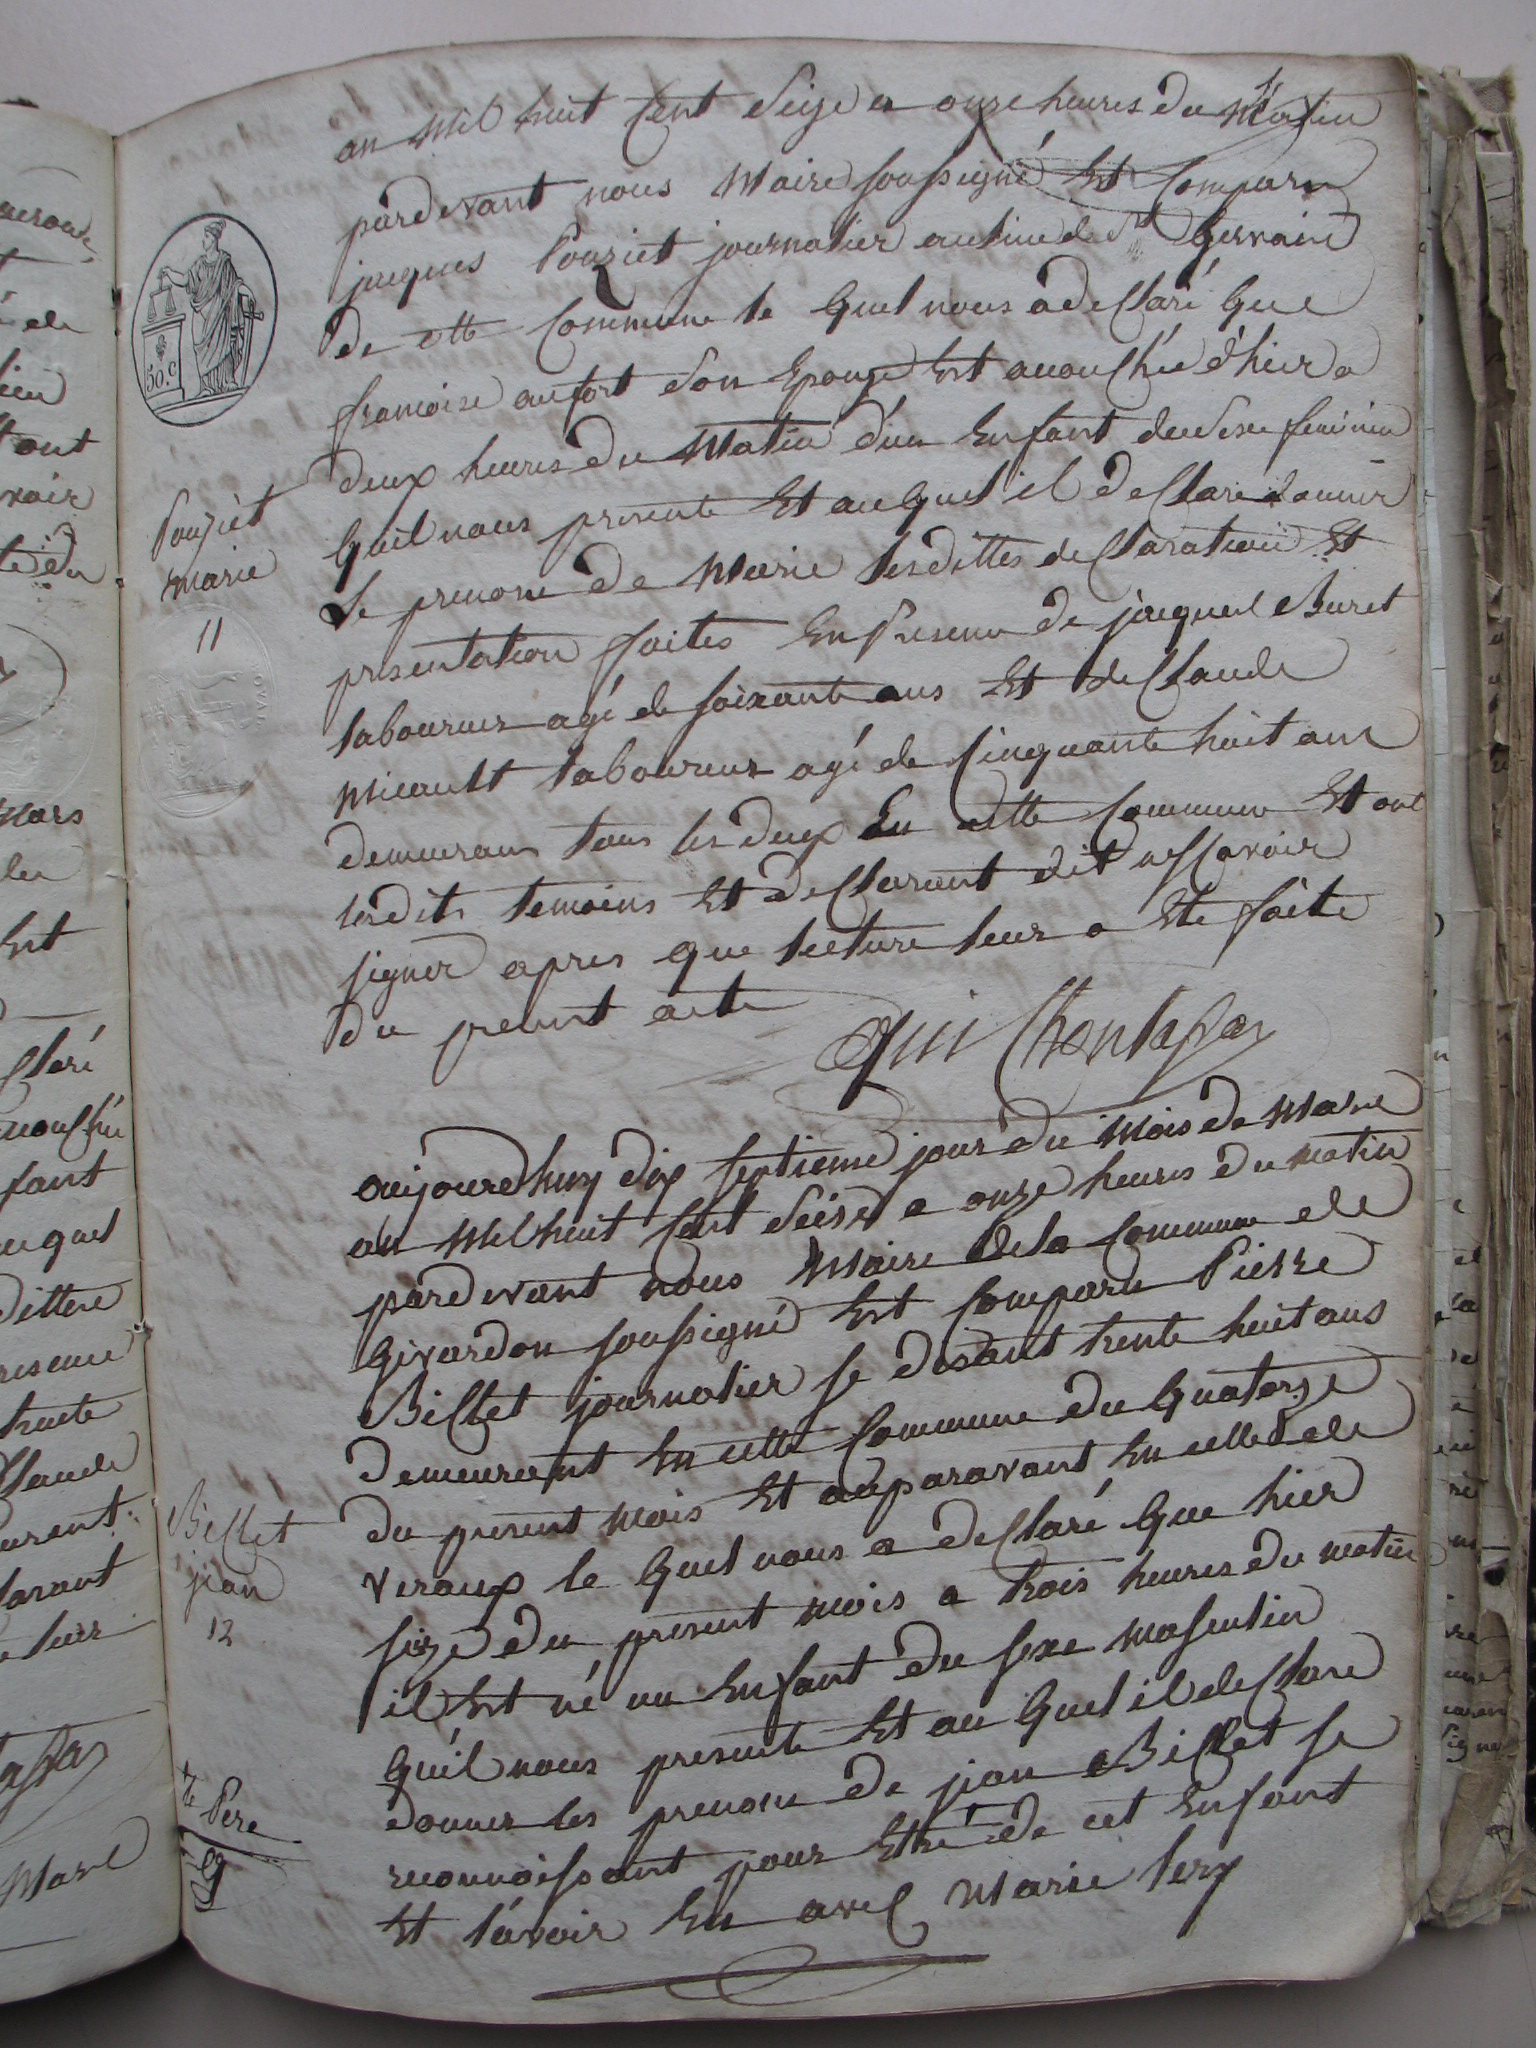 an mil huit Cent Seize a onze heures du Matin
pardevant nous Maire soussigné Est Comparu
jacques Pouziet journalier au lieu de St Gervain
de cette Commune le quel nous a declaré que
francoise aufort Son Epouze Est accouchée d'hier a
deux heures du Matin d'un Enfant du Sexe feminin
quil nous presente Et auquel il declare donner
le prenom de Marie lesdittes declaration Et
presentation faites En Presence de jacques Buret
laboureur agé de soixante ans Et de Claude
Micault laboureur agé de Cinquante huit ans
demeurans tous les deux En cette Commune Et ont
lesdits temoins Et declarant dit ne scavoir
signer apres que lecture leur a Ete faite
du present acte
50.c
Pouziet
marie
11
aujourdhuy dix septieme jour du Mois de Mars
an Mil huit Cent Seise a onze heures du matin
pardevant nous Maire de la Commune de
Girardon soussigné Est Comparu Pierre
Billet journalier se disant trente huit ans
demeurant En cette Commune du quatorze
du present mois Et auparavant En celle de
Veraux le quel nous a declaré que hier
size du present mois a trois heures du matin
il Est né un Enfant du sexe masculin
quil nous presente Et au quel il declare
donner les prenom de jean Billet se
reconnoissant pour Etre de cet Enfant
Et l'avoir Eu avec Marie lery
Billet
jean
12
le Pere